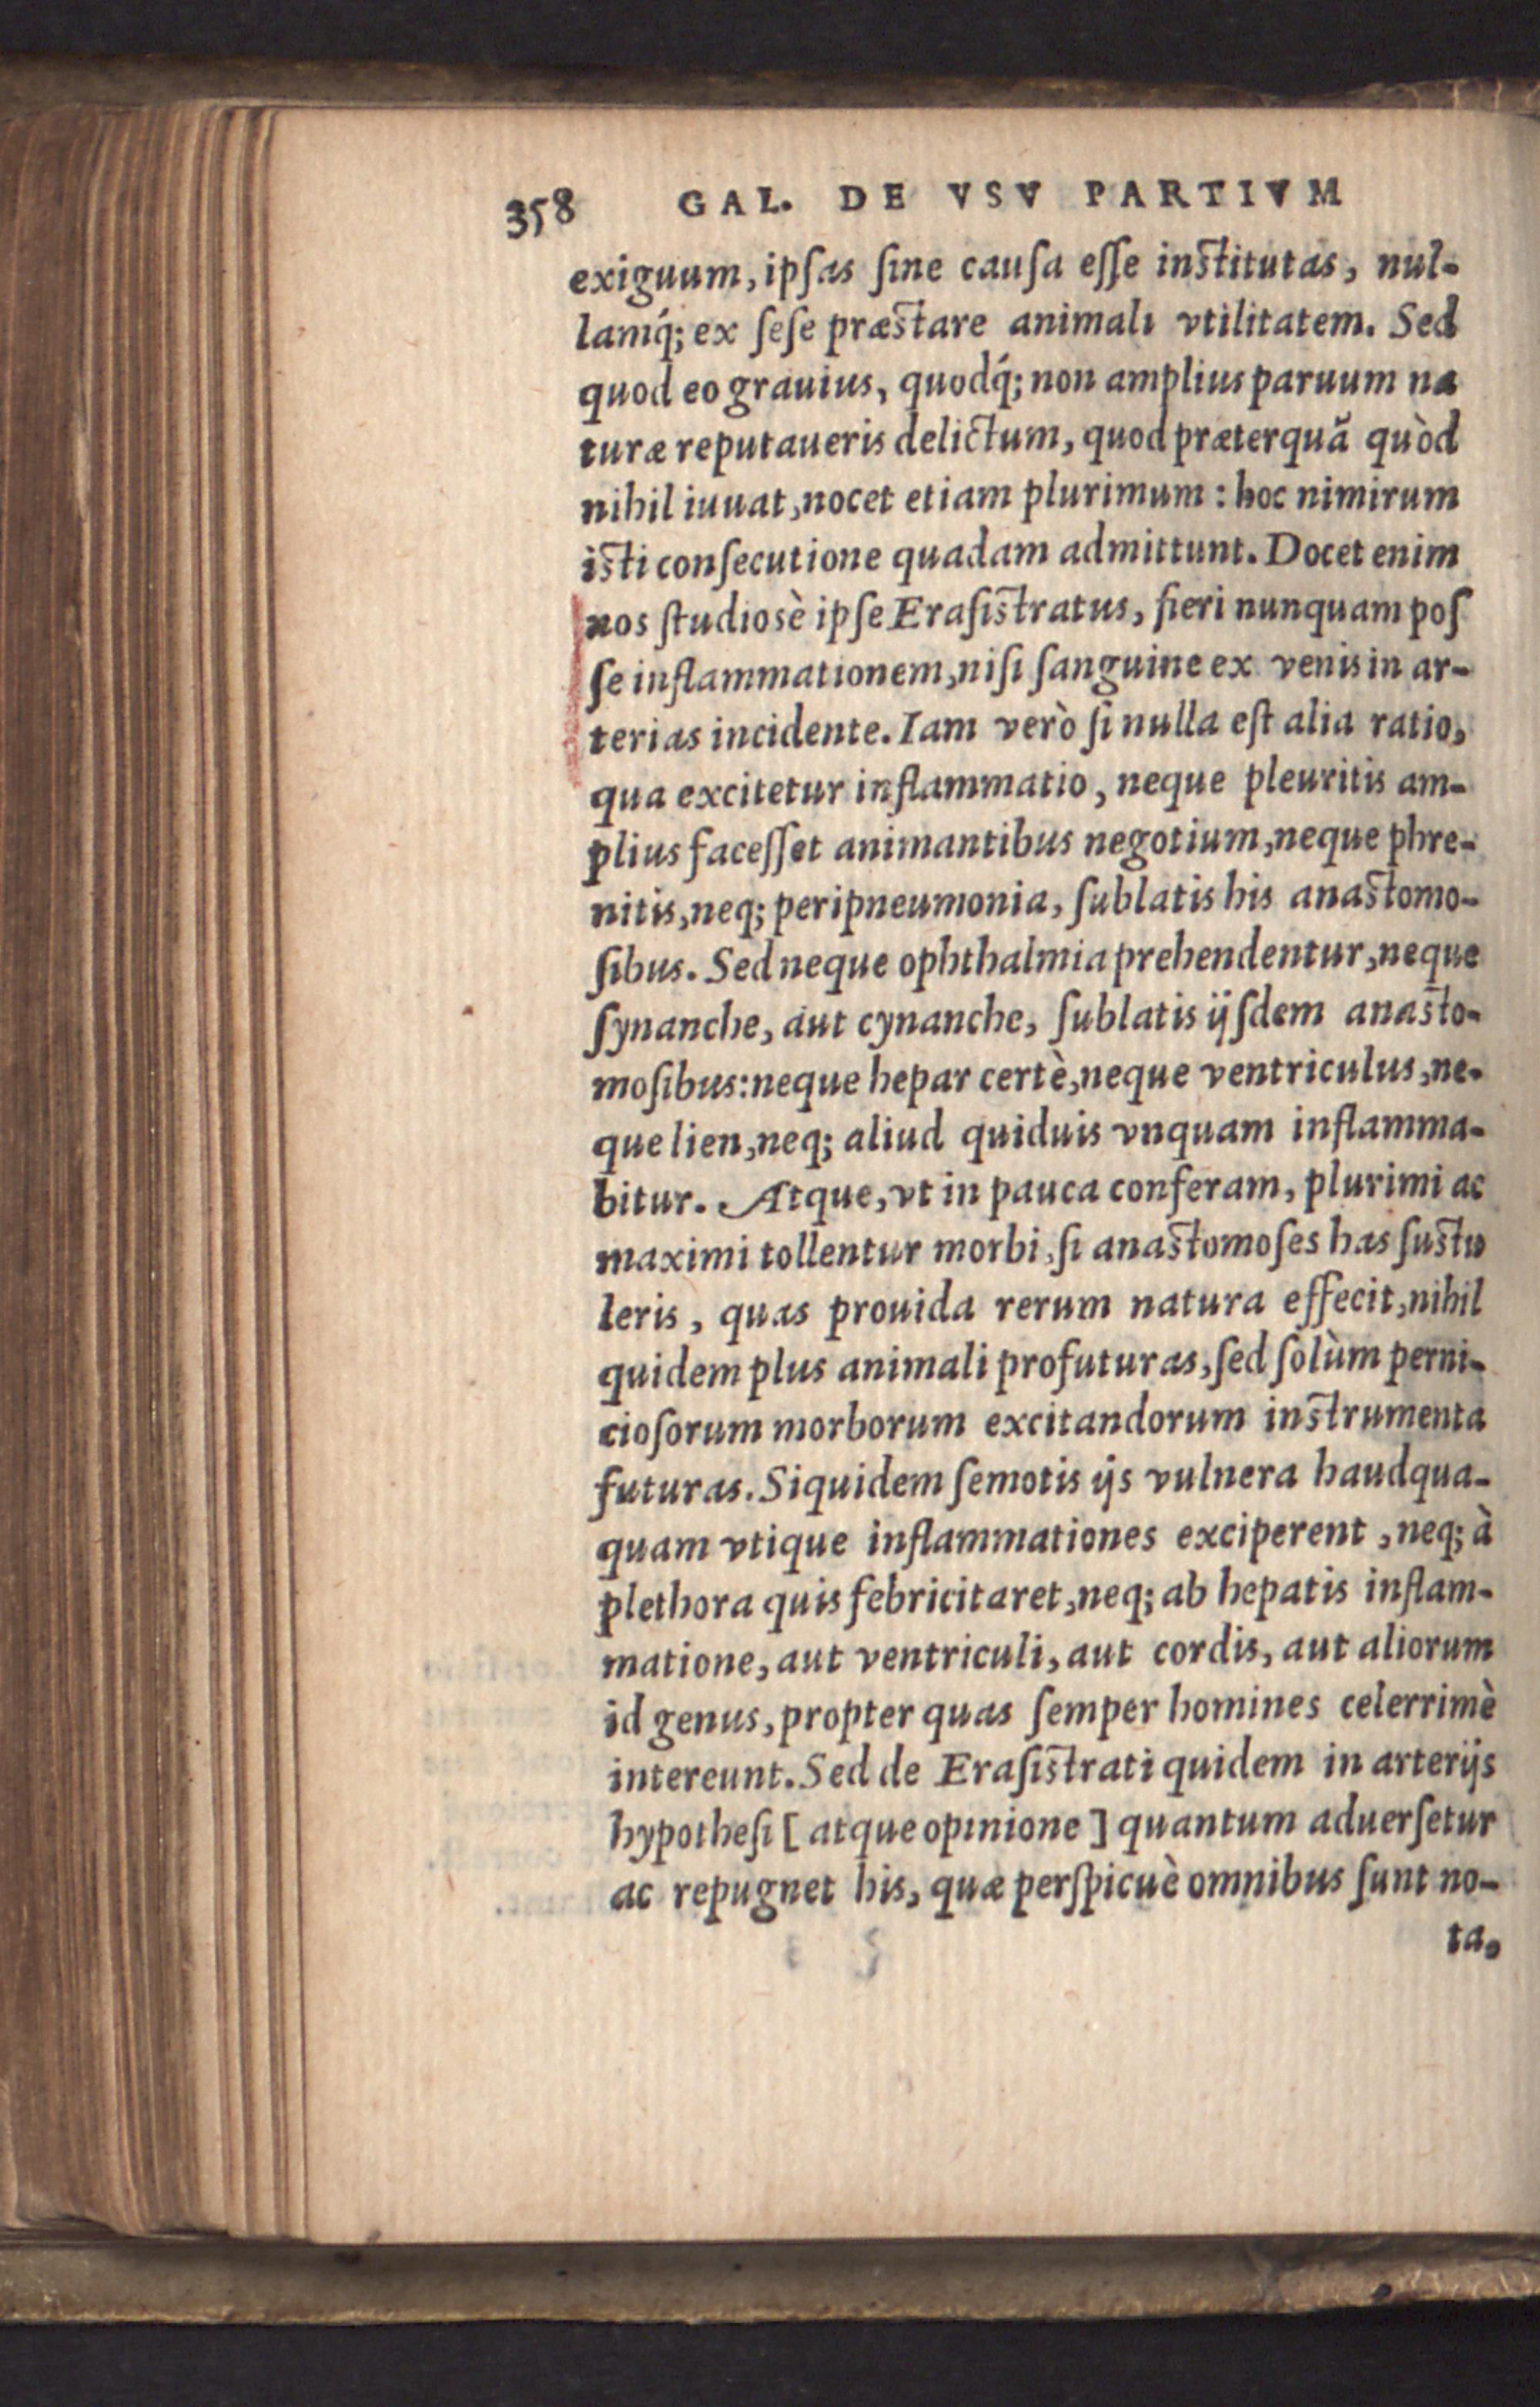 358 GAL. DE VSV PARTIVM
exiguum, ipſas ſine cauſa eſſe inſtitutas, nul-
lamq́; ex ſeſe præſtare animali vtilitatem. Sed
quod eo grauius, quodq́; non amplius paruum na
turæ reputaueris delictum, quod præterquã quòd
nihil iuuat, nocet etiam plurimum: hoc nimirum
iſti conſecutione quadam admittunt. Docet enim
nos ſtudiosè ipſe Eraſiſtratus, fieri nunquam poſ
ſe inflammationem, niſi ſanguine ex venis in ar-
terias incidente. Iam verò ſi nulla eſt alia ratio,
qua excitetur inflammatio, neque pleuritis am-
plius faceſſet animantibus negotium, neque phre-
nitis, neq; peripneumonia, ſublatis his anaſtomo-
ſibus. Sed neque ophthalmia prehendentur, neque
ſynanche, aut cynanche, ſublatis ijſdem anaſto-
moſibus: neque hepar certè, neque ventriculus, ne-
que lien, neq; aliud quiduis vnquam inflamma-
bitur. Atque, vt in pauca conferam, plurimi ac
maximi tollentur morbi, ſi anaſtomoſes has ſuſtu
leris, quas prouida rerum natura effecit, nihil
quidem plus animali profuturas, ſed ſolùm perni-
cioſorum morborum excitandorum inſtrumenta
futuras. Siquidem ſemotis ijs vulnera haudqua-
quam vtique inflammationes exciperent, neq; à
plethora quis febricitaret, neq; ab hepatis inflam-
matione, aut ventriculi, aut cordis, aut aliorum
id genus, propter quas ſemper homines celerrimè
intereunt. Sed de Eraſiſtrati quidem in arterijs
hypotheſi [ atque opinione ] quantum aduerſetur
ac repugnet his, quæ perſpicuè omnibus ſunt no-
ta,